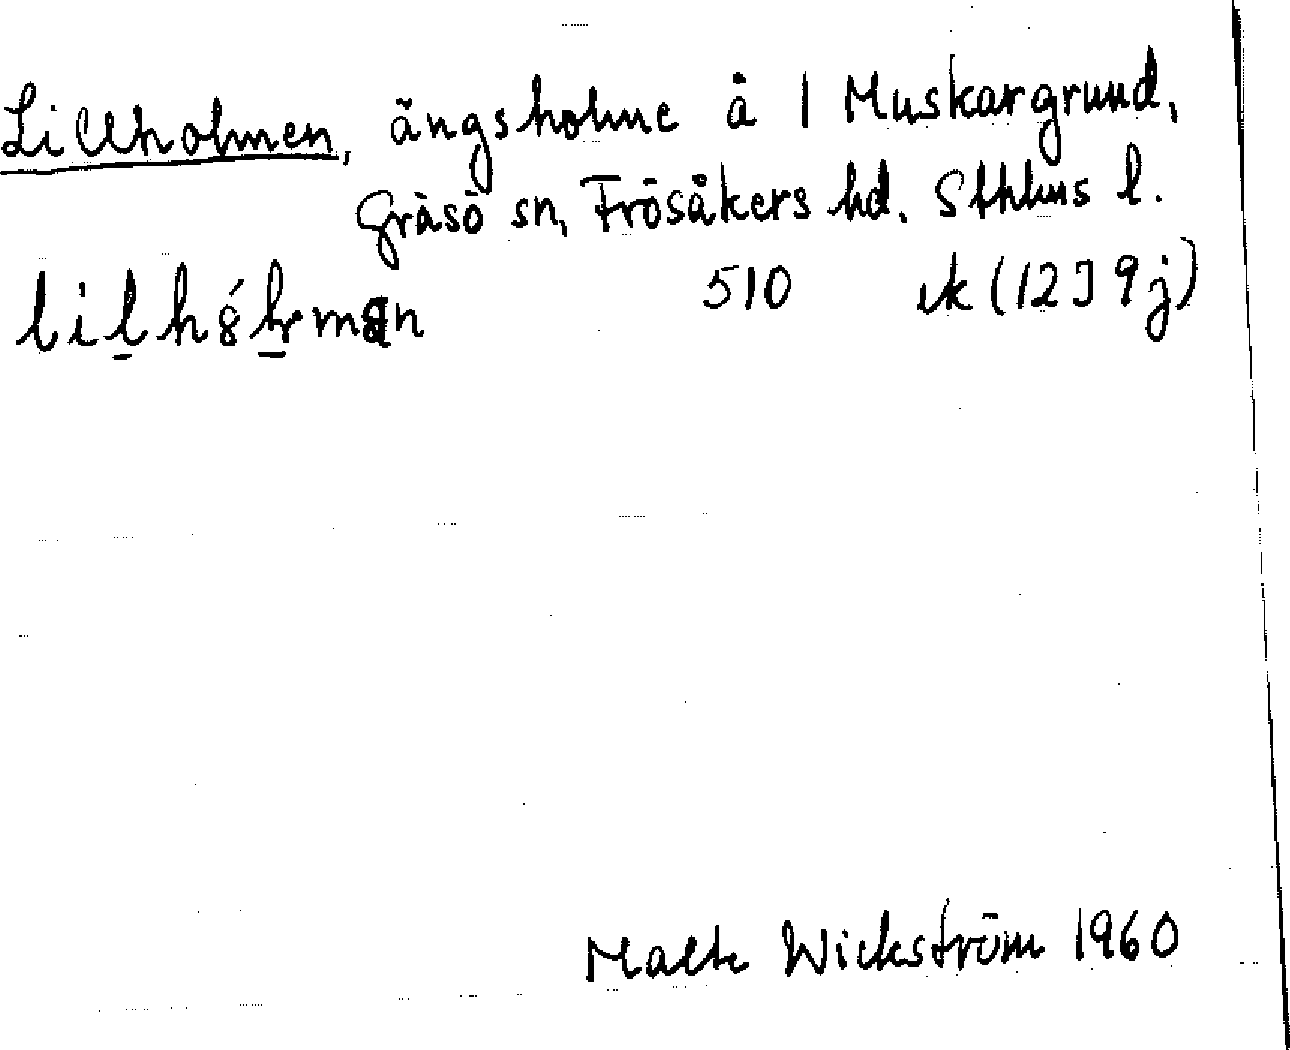 Lillholmen, ängsholme å 1 Muskargrund,
Gräsö sn, Frösåkers hd. Sthlms l.
510 ek (12 J 9 j)
Malte Wickström 1960